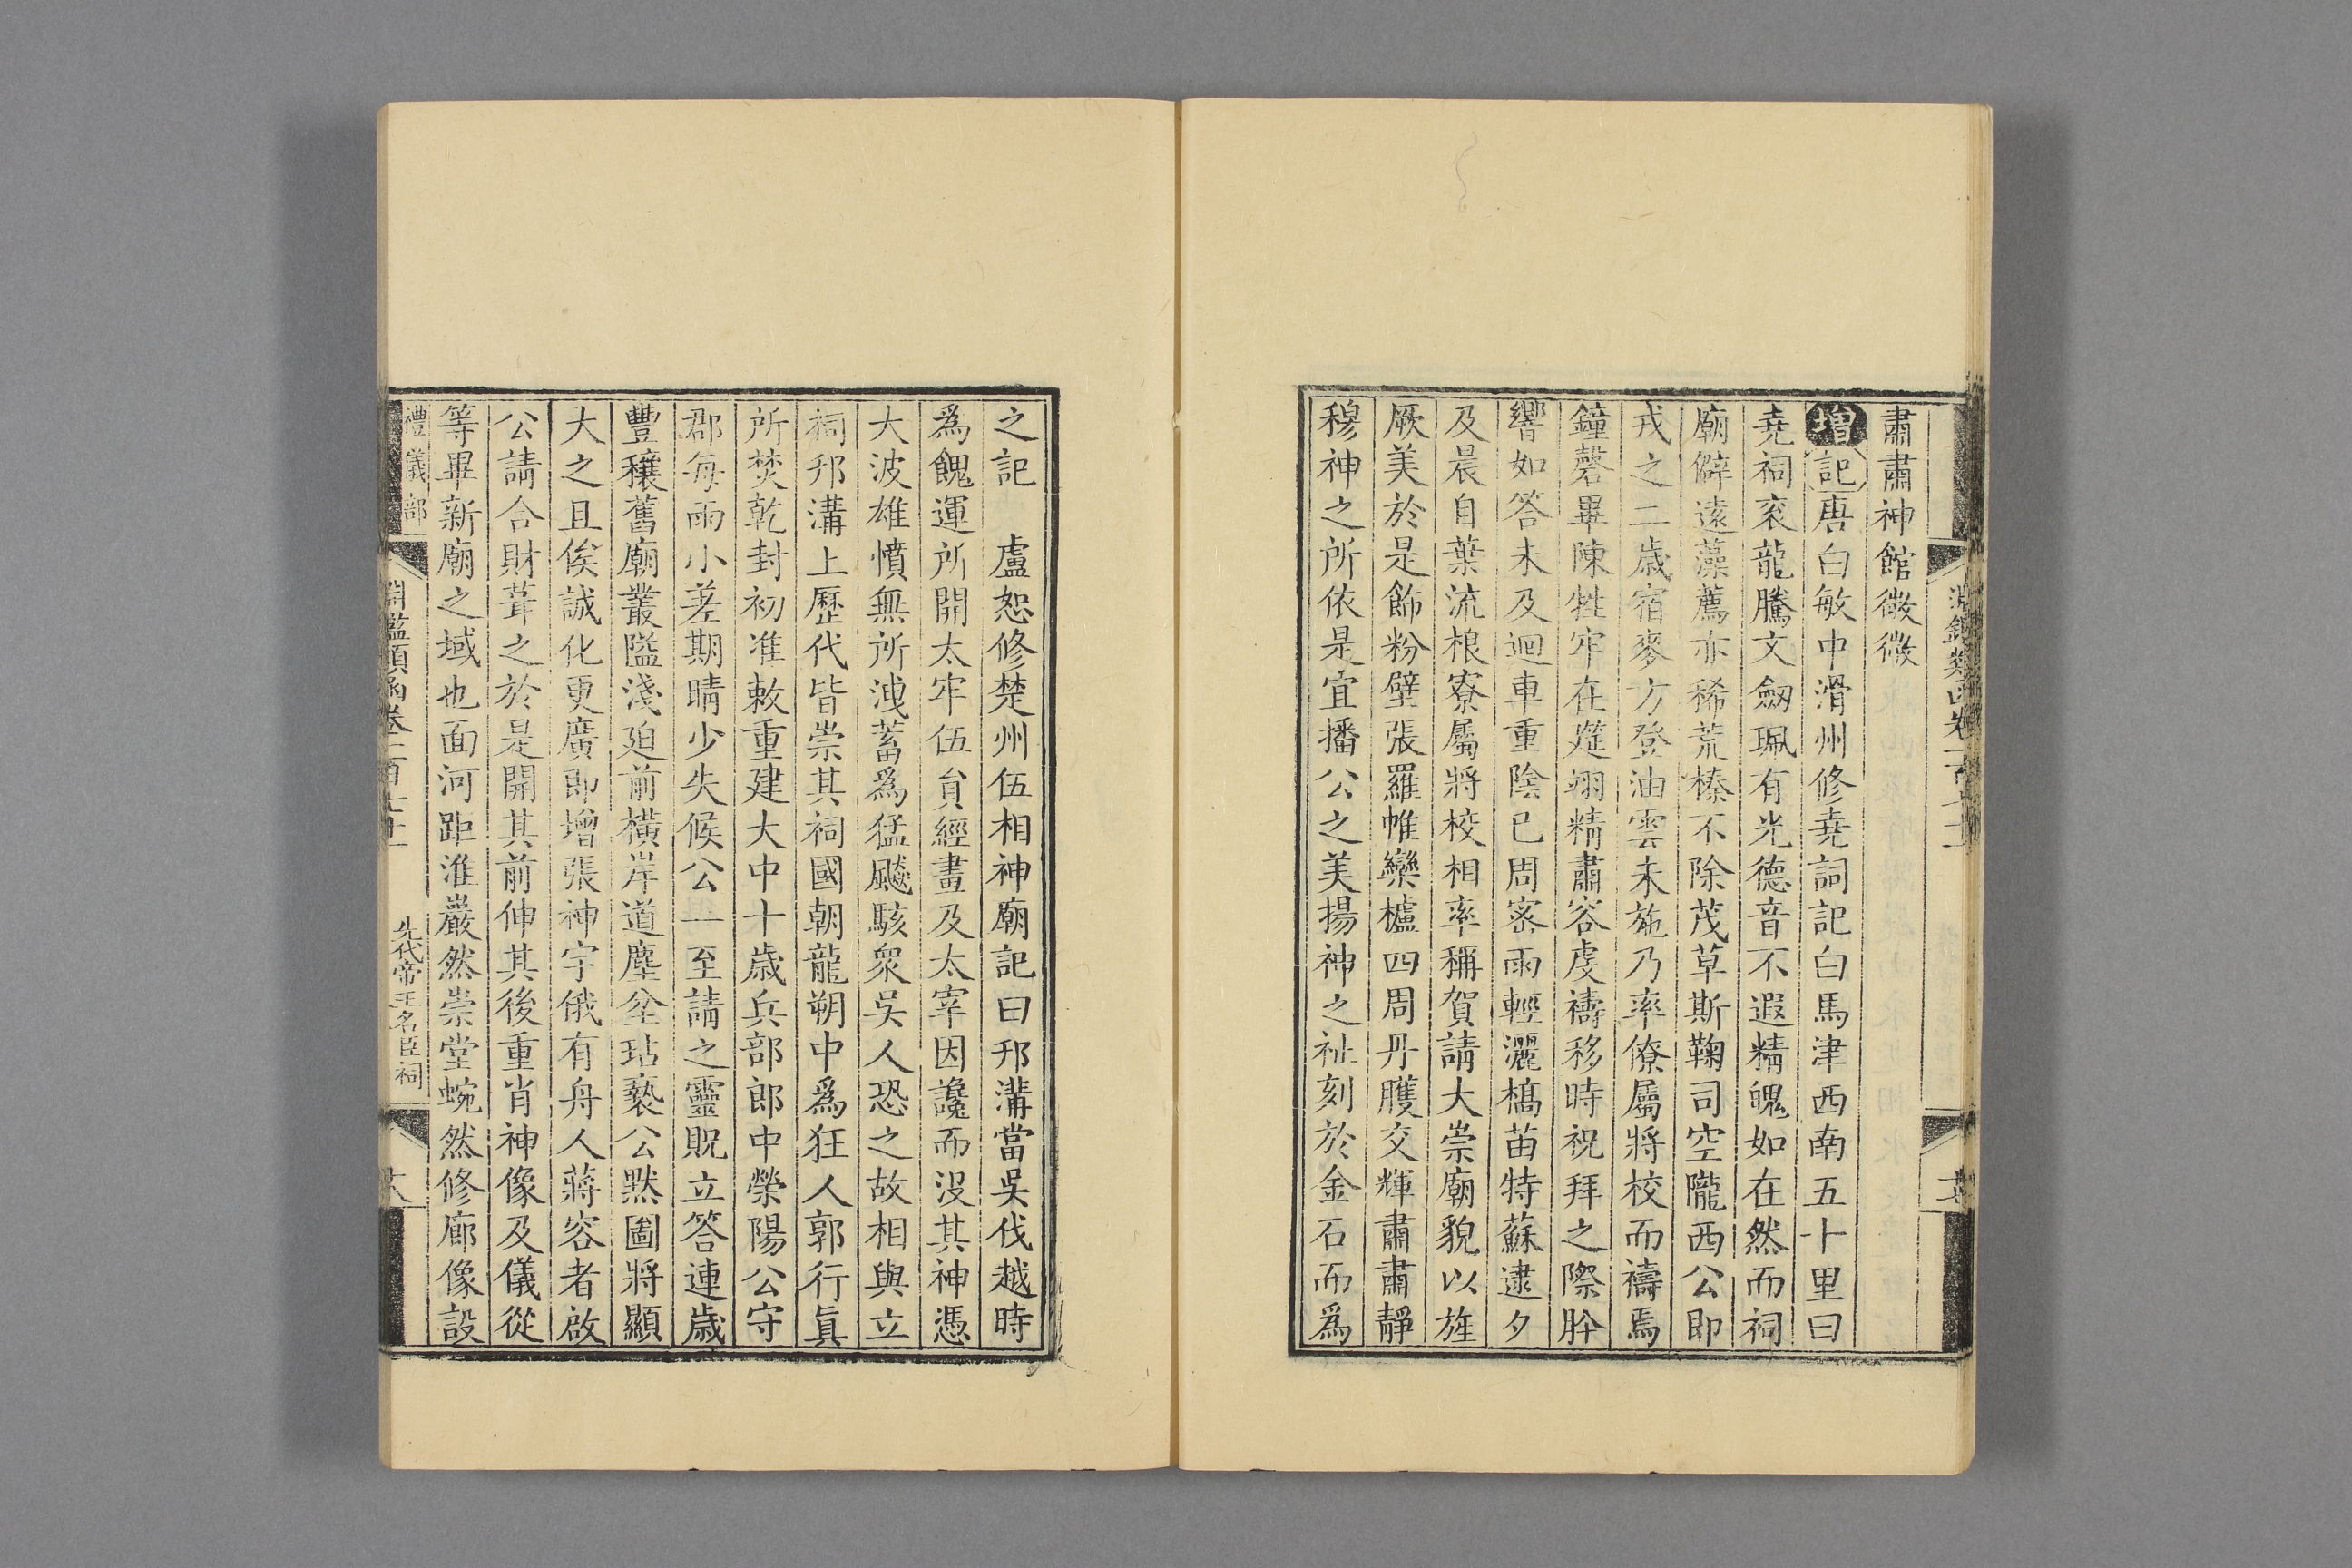 肅肅神館微微
增記唐白敏中滑州修堯詞記白馬津西南五十里曰
堯祠衮龍騰文劒珮有光德音不遐精魄如在然而祠
廟僻遠藻薦亦稀荒榛不除茂草斯鞠司空隴西公即
戎之二歲宿麥方登油雲未施乃率僚屬將校而禱焉
鐘磬畢陳牲牢在筵翊精肅容虔禱移時祝拜之際肸
響如答未及迴車重陰已周密雨輕灑槁苗特蘇逮夕
及晨自葉流根寮屬將校相率稱賀請大崇廟貌以旌
厥美於是飾粉壁張羅帷欒櫨四周丹雘交輝肅肅靜
穆神之所依是宜播公之美揚神之祉刻於金石而爲
之記　盧恕修楚州伍相神廟記曰邗溝當吳伐越時
爲餽運所開太牢伍負經畫及太宰因讒而沒其神憑
大波雄憤無所洩蓄爲猛飈駭衆吳人恐之故相與立
祠邗溝上歷代皆崇其祠國朝龍朔中爲狂人郭行眞
所焚乾封初准敕重建大中十歲兵部郎中滎陽公守
郡每雨小差期晴少失候公一至請之靈貺立答連歲
豐穰舊廟叢隘淺廹前橫岸道塵坌玷褻公默圖將顯
大之且俟誠化更廣即增張神宇俄有舟人蔣容者啟
公請合財葺之於是開其前伸其後重肖神像及儀從
等畢新廟之域也面河距淮巖然崇堂蜿然修廊像設
禮儀部
淵鑑類函卷一百七十
先代帝王名臣祠